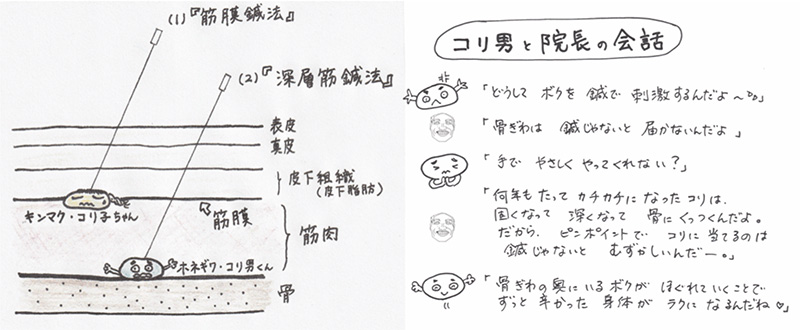 (1)『筋膜鍼法』
(2)『深層筋鍼法』
表皮
真皮
皮下組織
(皮下脂肪)
キンマク・コリ子ちゃん
筋膜
筋肉
ホネギワ・コリ男くん
骨
コリ男と院長の会話
「どうして ボクを 鍼で 刺激するんだよ〜」
「骨ぎわは 鍼じゃないと 届かないんだよ」
「手で やさしく やってくれない?」
「何年もたって カチカチに なった コリは、
固くなって 深くなって 骨に くっつくんだよ。
だから、ピンポイントで コリに 当てるのは
鍼じゃないと むずかしいんだー。」
「骨ぎわの奥に いる ボクが ほぐれて いくことで
ずっと 辛かった 身体が ラクに なるんだね♡」